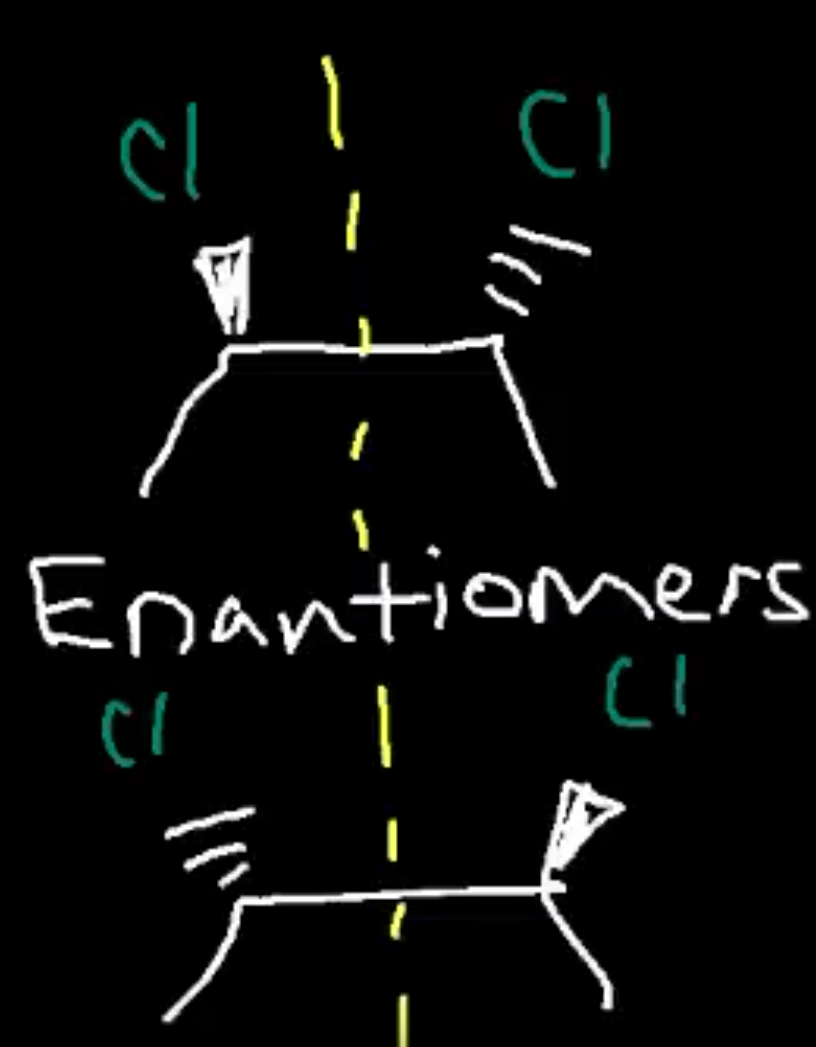 Cl Cl
Enantiomers
Cl Cl